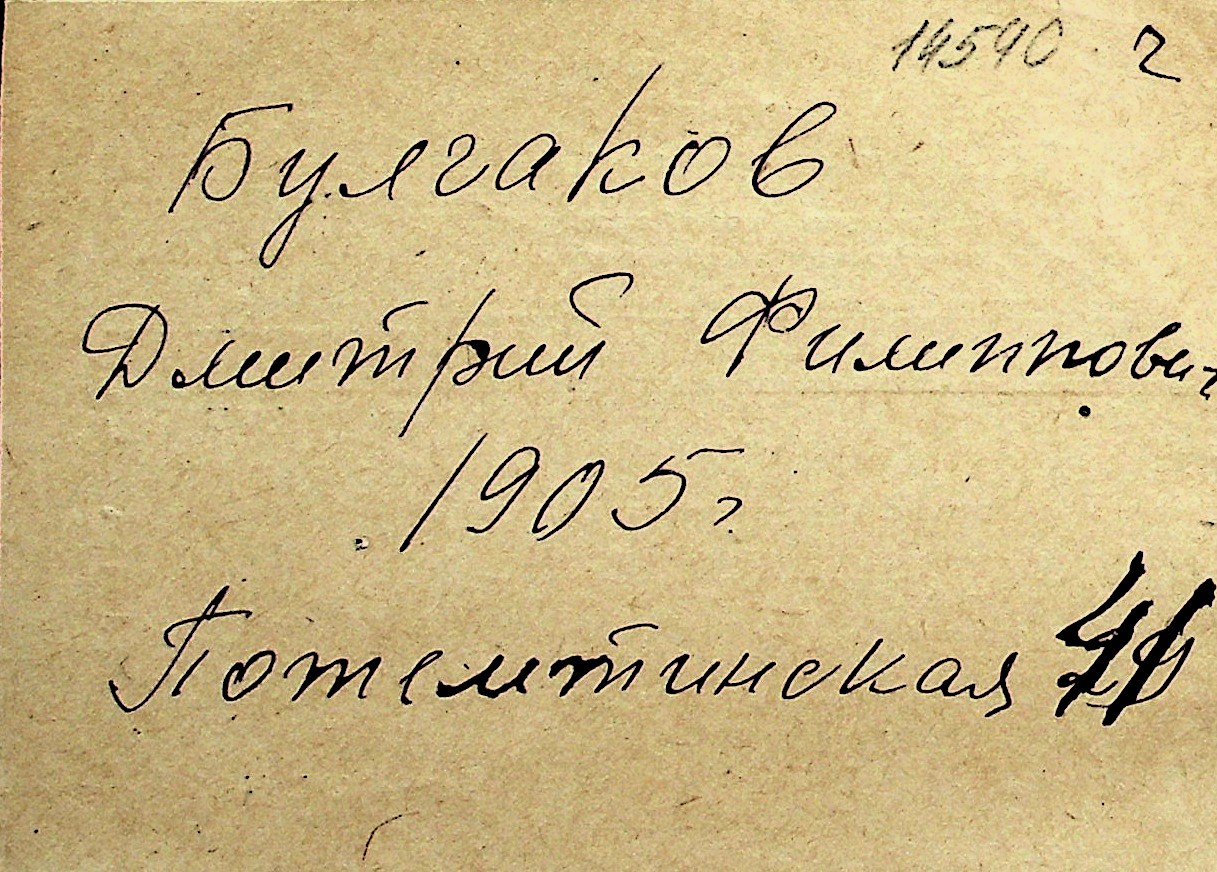 14590 2
Булгаков
Дмитрий Филиппович
1905 г
Потемтинская 41